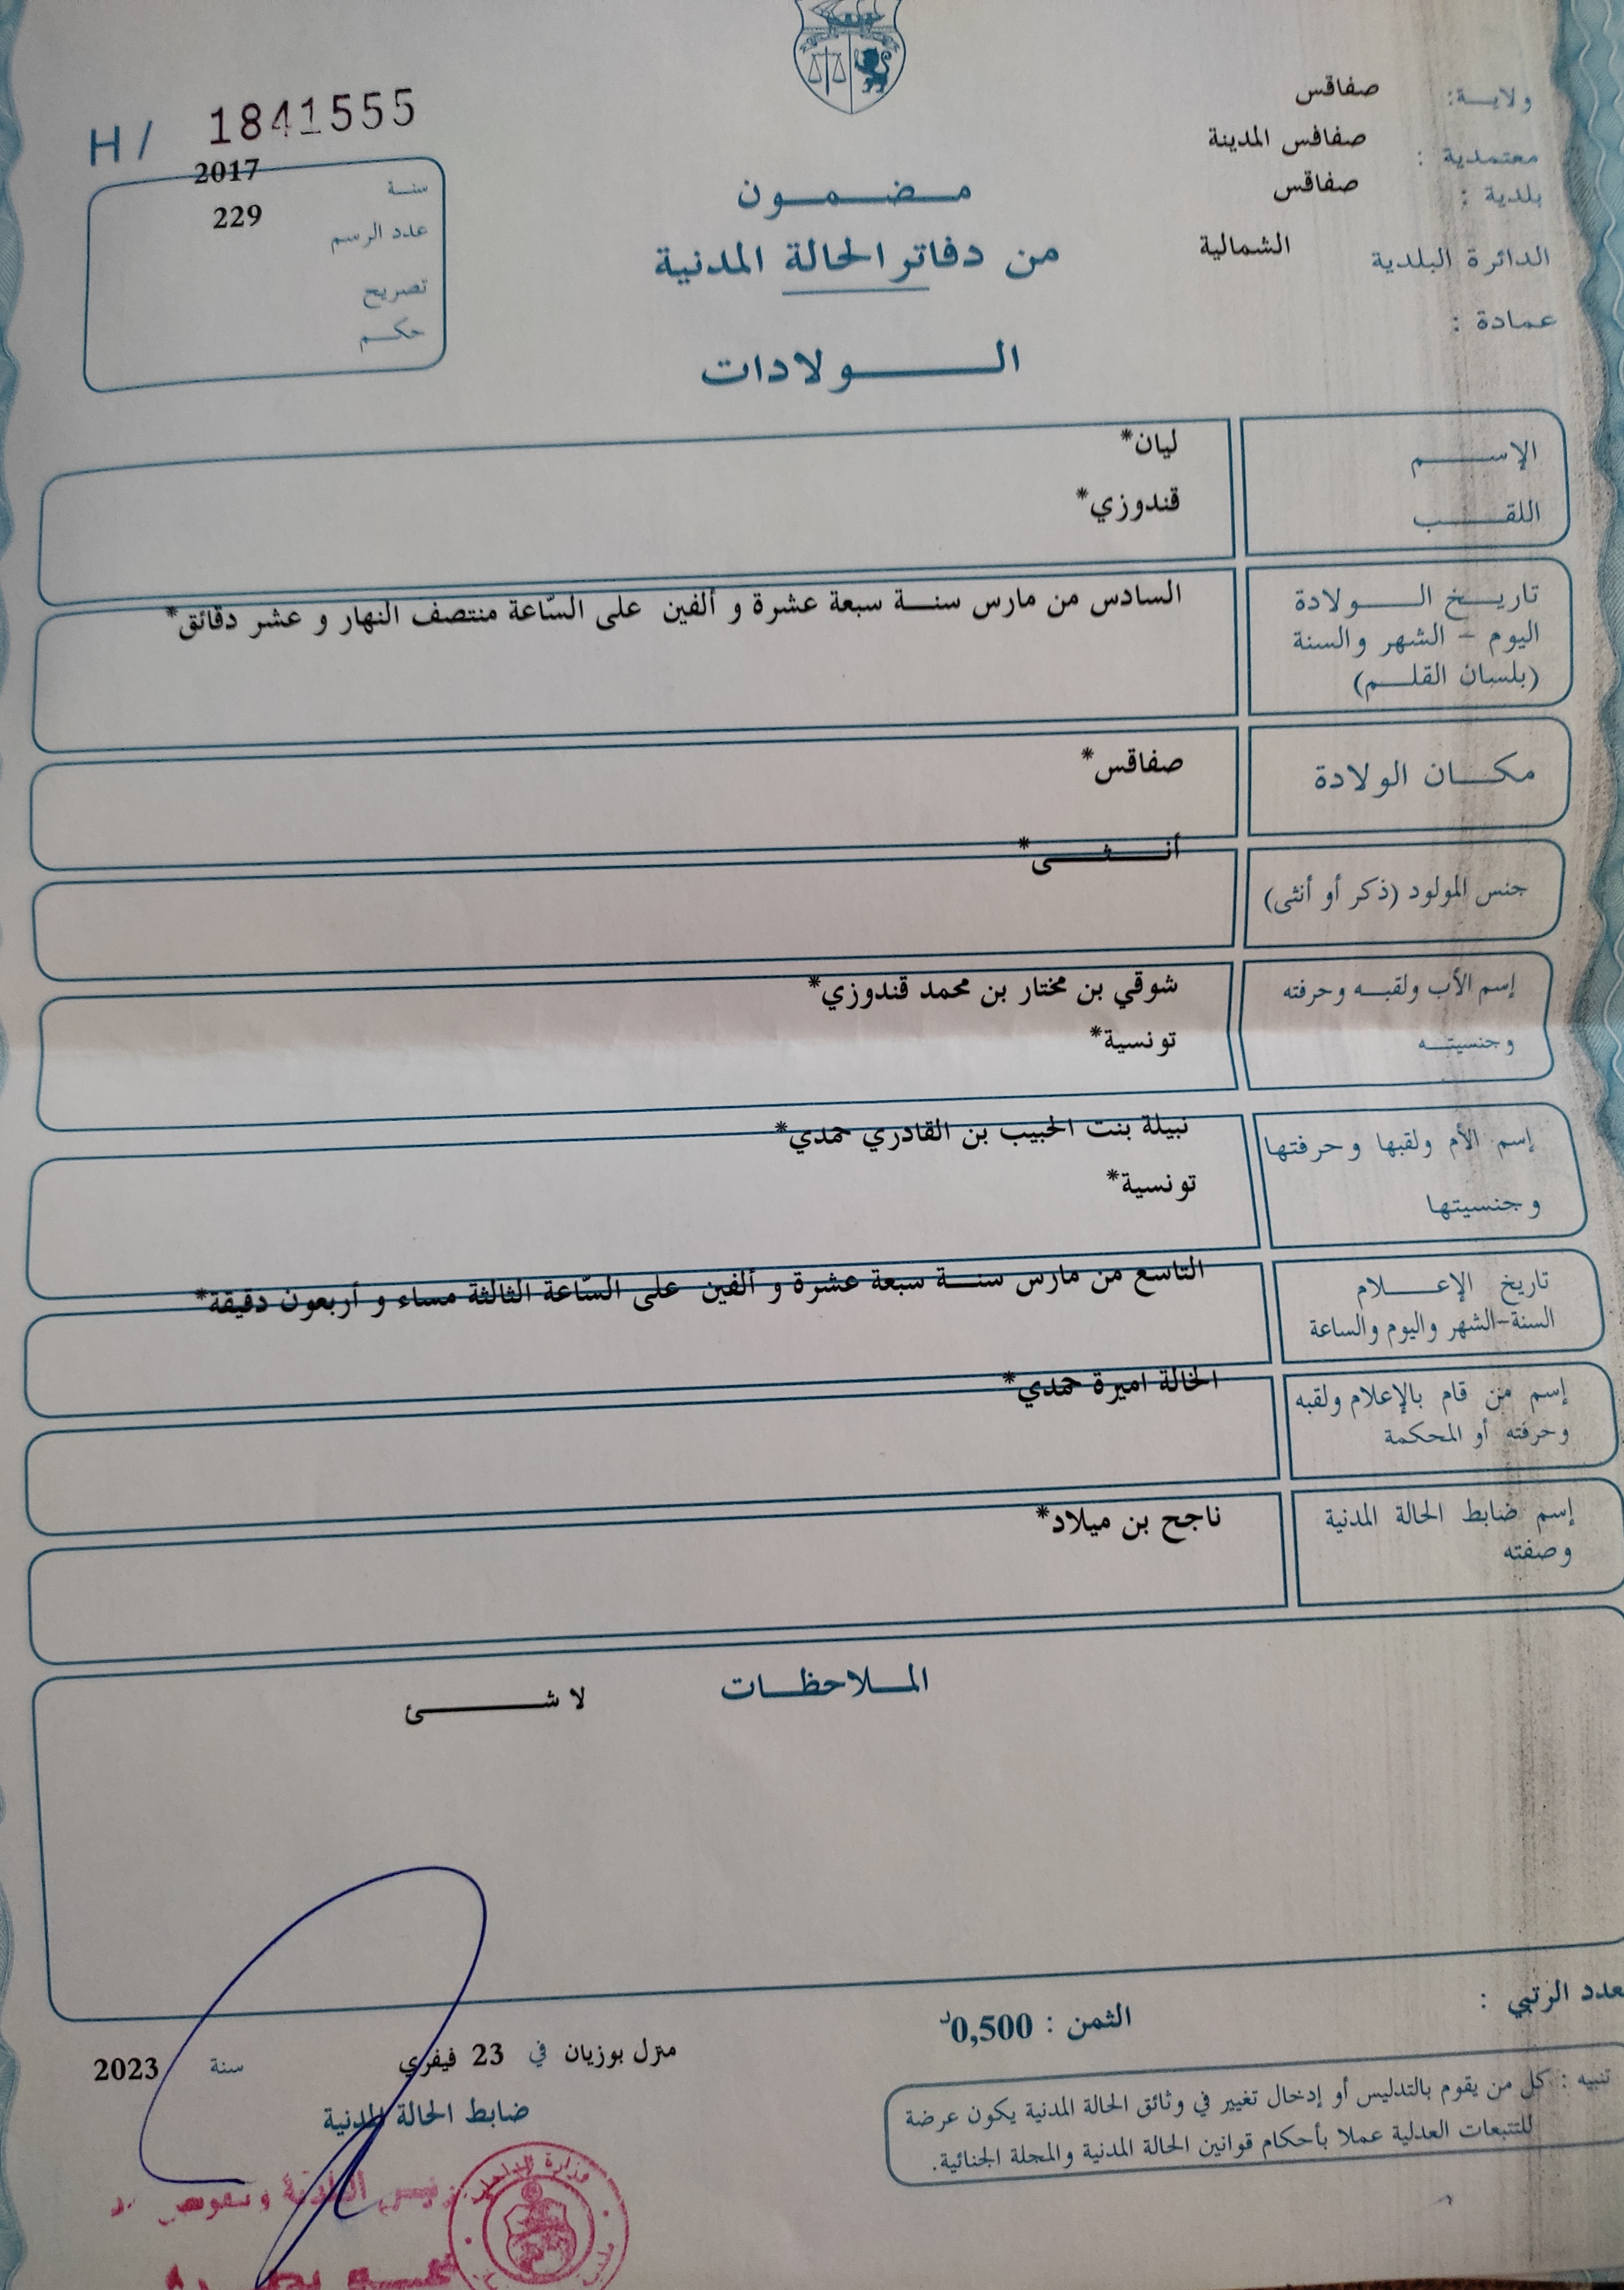 ولاية: صفاقس
معتمدية : صفاقس المدينة
بلدية : صفاقس
الدائرة البلدية الشمالية
عمادة :
مضمون
من دفاتر الحالة المدنية
الولادات
H / 1841555
سنة 2017
عدد الرسم 229
تصريح
حكم
الإسم ليان*
اللقب قندوزي*
تاريخ الولادة السادس من مارس سنة سبعة عشرة و ألفين على السّاعة منتصف النهار و عشر دقائق*
اليوم - الشهر والسنة
(بلسان القلم)
مكان الولادة صفاقس*
جنس المولود (ذكر أو أنثى) أنثى*
إسم الأب ولقبه وحرفته شوقي بن مختار بن محمد قندوزي*
وجنسيته تونسية*
إسم الأم ولقبها وحرفتها نبيلة بنت الحبيب بن القادري حمدي*
وجنسيتها تونسية*
تاريخ الإعلام التاسع من مارس سنة سبعة عشرة و ألفين على السّاعة الثالثة مساء و أربعون دقيقة*
السنة-الشهر واليوم والساعة
إسم من قام بالإعلام ولقبه الخالة اميرة حمدي*
وحرفته أو المحكمة
إسم ضابط الحالة المدنية ناجح بن ميلاد*
وصفته
الملاحظات لا شئ
عدد الرتبي :
الثمن : 0,500د
منزل بوزيان في 23 فيفري سنة 2023
ضابط الحالة المدنية
تنبيه : كل من يقوم بالتدليس أو إدخال تغيير في وثائق الحالة المدنية يكون عرضة
للتتبعات العدلية عملا بأحكام قوانين الحالة المدنية والمجلة الجنائية.
رئيس البلدية
وزارة الداخلية